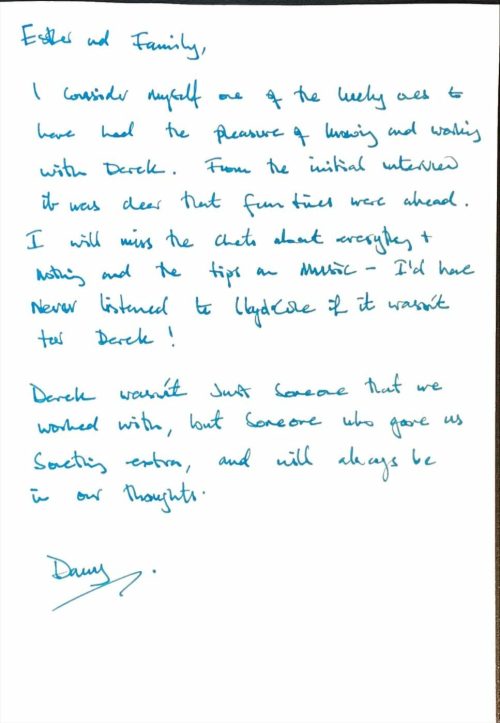 Esther and Family,
I consider myself one of the lucky ones to
have had the pleasure of knowing and working
with Derek. From the initial interview
it was clear that fun times were ahead.
I will miss the chats about everything +
nothing and the tips on Music - I'd have
Never listened to Lloyd Cole if it wasn't
for Derek!
Derek wasn't just someone that we
worked with, but someone who gave us
Something extra, and will always be
in our thoughts.